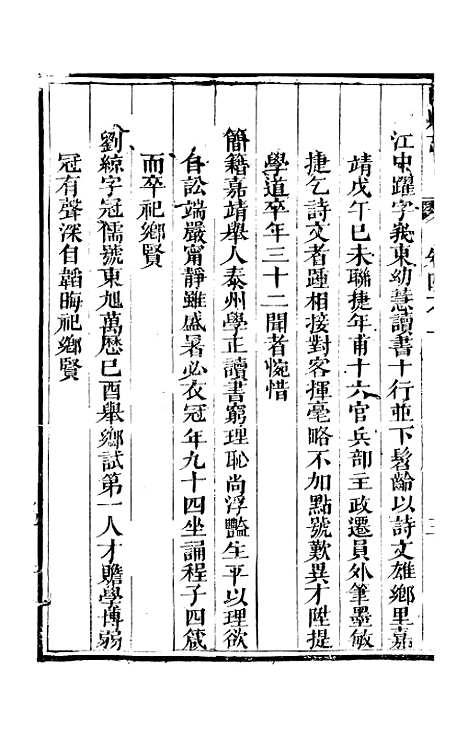 江中躍字義東幼慧讀書十行並下髫齡以詩文雄鄉里嘉
靖戊午巳未聯捷年甫十六官兵部主政遷員外筆墨敏
捷乞詩文者踵相接對客揮毫略不加點號歎異才陞提
學道卒年三十二聞者惋惜
簡籍嘉靖舉人泰州學正讀書窮理恥尚浮豔生平以理欲
自訟端嚴甯靜雖盛暑必衣冠年九十四坐誦程子四箴
而卒祀鄉賢
劉綡字冠儒號東旭萬歷巳酉舉鄉試第一人才贍學博弱
冠有聲深自韜晦祀鄉賢